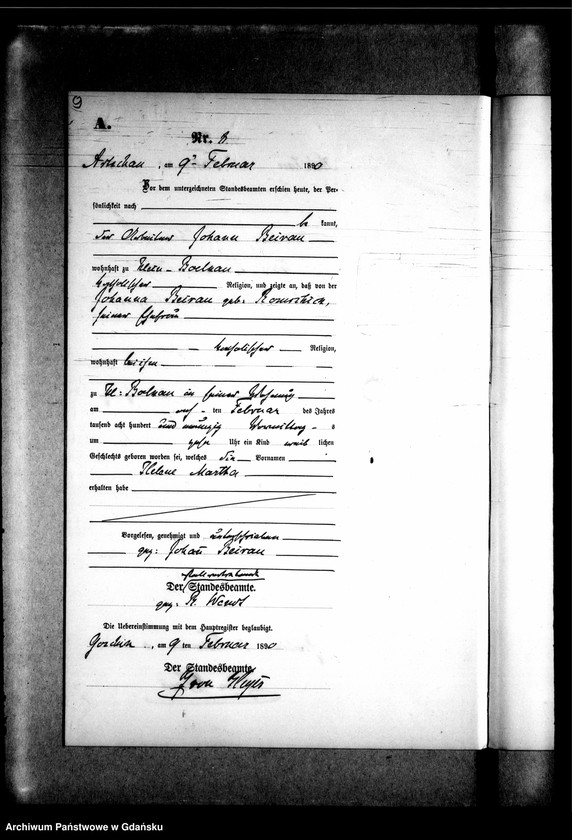 9
A.
Nr. 8.
Artschau, am 9n Februar 1890
Vor dem unterzeichneten Standesbeamten erschien heute, der Per-
sönlichkeit nach
be kannt,
der Arbeiter Johann Beirau
wohnhaft zu Klein-Boelkau
katholischer Religion, und zeigte an, daß von der
Johanna Beirau geb:
seiner Ehefrau
katholischer Religion,
wohnhaft bei ihm
zu Kl: Boelkau in seiner Wohnung
am ten Februar des Jahres
tausend acht hundert und neunzig Vormittags
um Uhr ein Kind weib lichen
Geschlechts geboren worden sei, welches die Vornamen
Helene Martha
erhalten habe
Vorgelesen, genehmigt und unterschrieben
gez: Johann Beirau
stellvertretende
Der Standesbeamte.
gez: R. Wendt
Die Uebereinstimmung mit dem Hauptregister beglaubigt.
am 9 ten Februar 1890
Der Standesbeamte
von Heyer
Archiwum Państwowe w Gdańsku